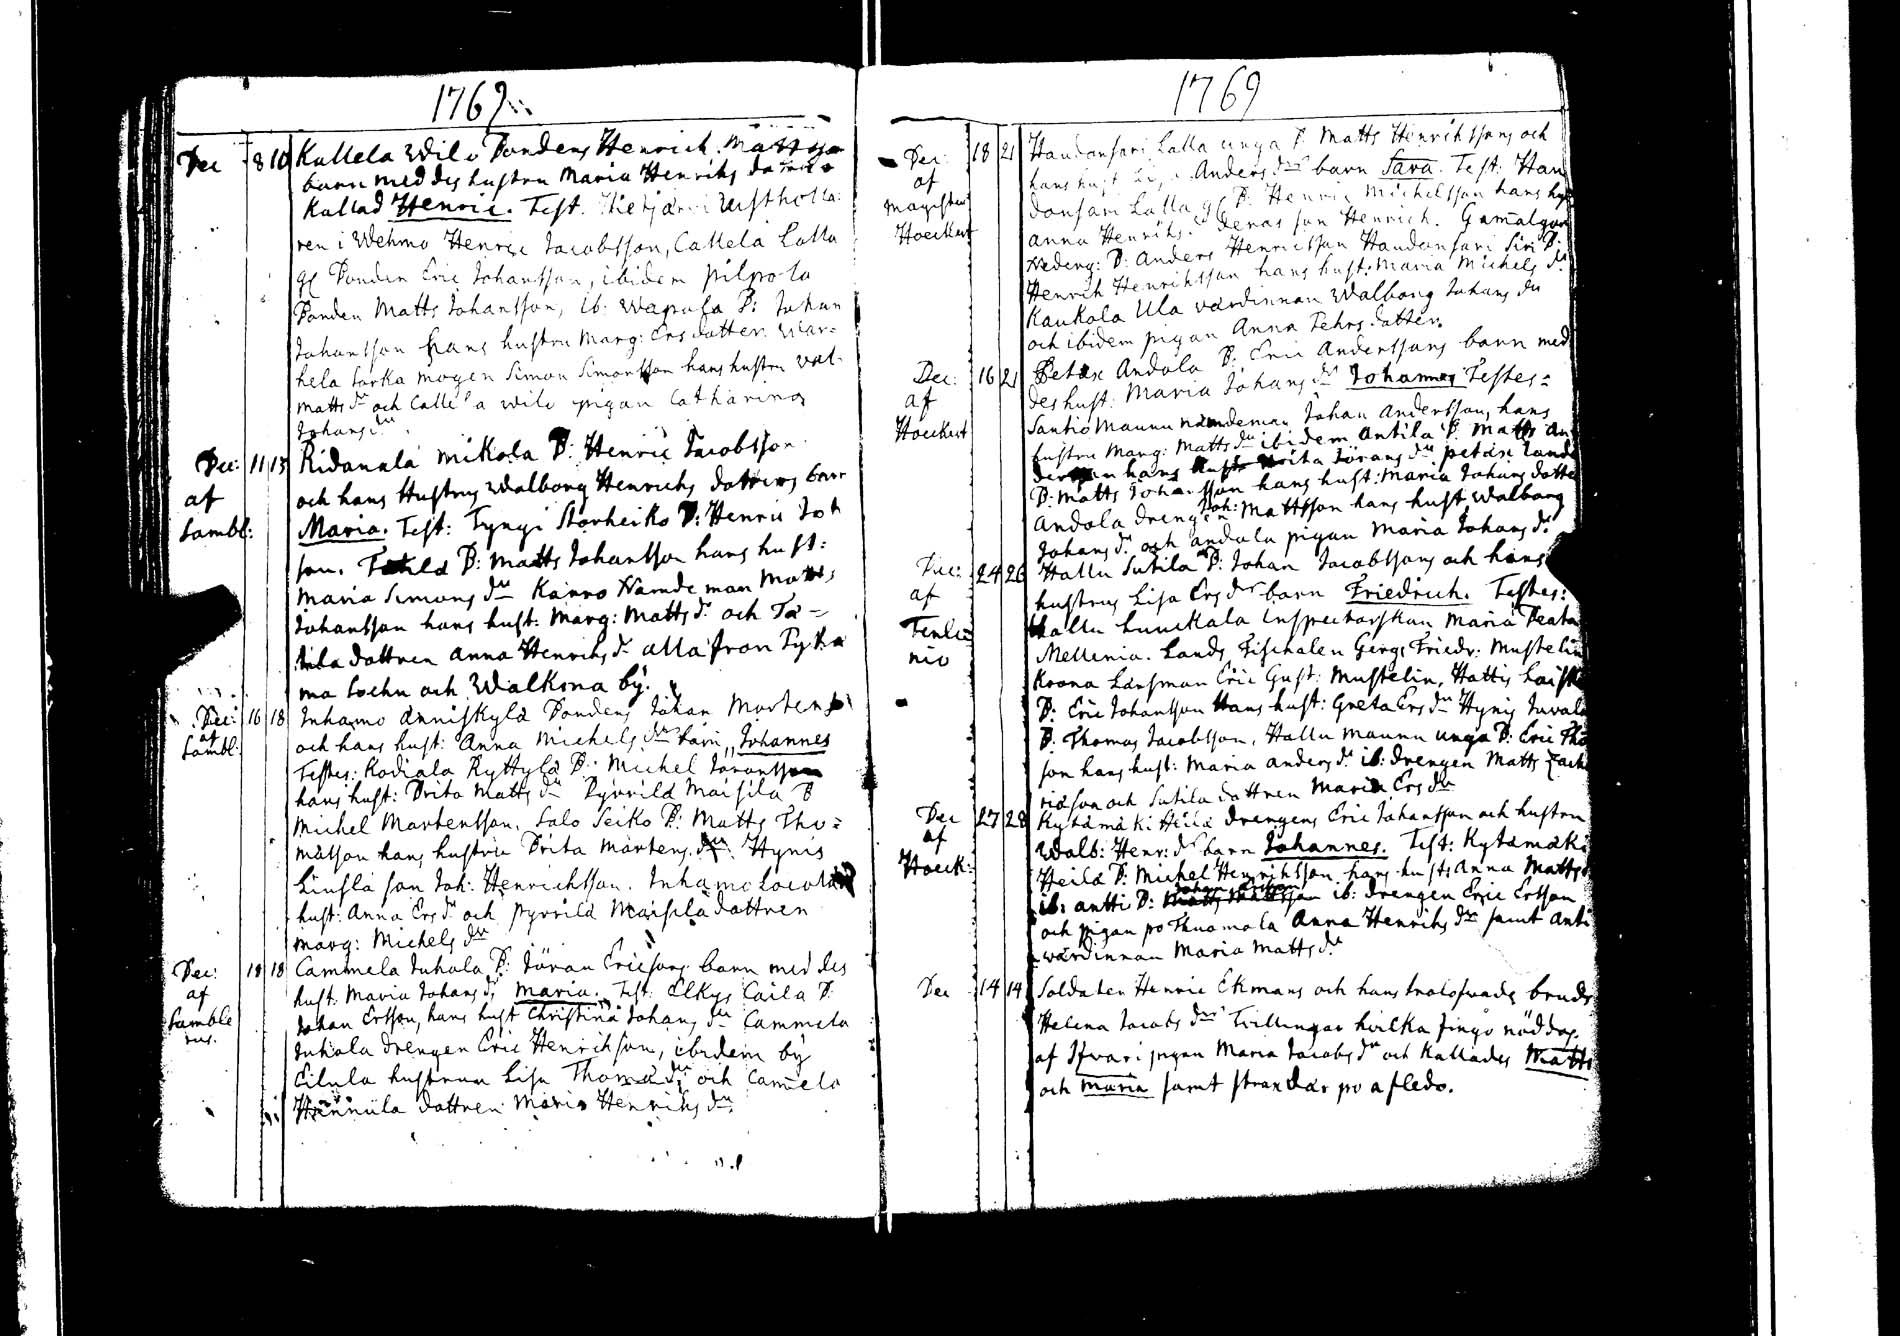 1769
Dec 8 10 Kallela Wilo Bondens Henrich Matts
barn med des hustru Maria Henriks
Kallad Henric. Test. Rusthålla
ren i Wehmo Henric Jacobsson, Callela Lalla
gl Bonden Eric Johansson, ibidem Pilpola
Bonden Matts Johansson, ib: Wapula B: Johan
Johansson hans hustru Marg: Ers dotter. War=
hela Sorka mogen Simon Simonsson hans hustru Wal.
Matts dr och Callela Wilo pigan Catharina
Johans dr
Dec: 11 13 Ridannla Mikola B: Henric Jacobsson
af och hans Hustrus Walborg Henrichs dotters barn
Sambl: Maria. Test: Tyngi Storheiko B: Henric Joh
son. B: Matts Johansson hans hust:
Maria Simons dr Karro Nämdeman Matts
Johansson hans hust: Marg: Matts dr och Ta=
tila dottren Anna Henriks dr alla från Pytha
ma Sochn och Walkona by.
Dec: 16 18 Inhamo Anniskylä Bondens Johan Mortens
af och hans hust: Anna Michels dr barn Johannes
Sambl: Testes: Kodiala Ryttylä B: Michel Joransson
hans hust: Brita Matts dr Pyvrilä Maisila B
Michel Mortensson. Salo Seiko B: Matts Tho=
masson hans hustru Brita Mårtens dr. Hynis
Liusla son Joh: Henrichsson. Inhamo
hust: Anna Ers dr och Pyvrilä Maisila dottren
Marg: Michels dr
Dec: 18 18 Cammela Juhola B: Jöran Ericsons barn med des
af hust. Maria Johans dr Maria. Test: Elkys Caila B
Samble Johan Ersson, hans hust Christina Johans dr Cammela
rus. Juhola drengen Eric Henrikson, ibidem by
Eilula hustrun Lisa Thomæ dr och Camela
Hannula dottren Maria Henriks dr
1769
Dec: 18 21 Haudansari Lalla unga B: Matts Henrikssons och
af hans hust Anders dr barn Sara. Test: Hau
Magister dansari Lalla gl B: Henric Michelsson hans hust
Hoeckert Anna Henriks. Denas son Henrich. Gamalgon
Nederg: B: Anders Henricsson Haudansari Siri B:
Henrik Henriksson hans hust: Maria Michels dr
Kaukola Ula värdinnan Walborg Johans dr
och ibidem pigan Anna Pehrs dotter.
Dec: 16 21 Petäx Andola B: Eric Anderssons barn med
af des hust: Maria Johans dr Johannes Testes=
Hoeckert Santio Maunu nämdeman Johan Andersson, hans
hustru Marg: Matts dr ibidem Antila B. Matts An
hans hust Jörans dr Petäx
B: Matts Johansson hans hust: Maria Johans dotter
Andola drengen Joh: Mattsson hans hust Walborg
Johans dr och Andola pigan Maria Johans dr
Dec: 24 26 Hallu Sutila B: Johan Jacobssons och hans
af hustrus Lisa Ers dr barn Friedrich. Testes:
Tenle= Hallu Luuckala Inspectorskan Maria Beata
nio Mellenia. Lands Fischalen Georg Friedr: Mustelin
Krono Länsman Eric Gust: Mustelin, Hattis
B: Eric Johansson Hans hust: Greta Ers dr Hynis Juvala
B. Thomas Jacobsson, Hallu Maunu unga B: Eric Tho
son hans hust: Maria Anders dr ib: drengen Matts Zacha
riæson och Sutila dottren Maria Ers dr
Dec 27 28 Kytämäki Heilä drengens Eric Johansson och hustru
af Walb: Henr: dr barn Johannes. Test: Kytämäki
Hoeck: Heilä B: Michel Henriksson hans hust: Anna Matts
ib: Antti B: ib: drengen Eric Ersson
och pigan på Thuomola Anna Henriks dr samt Anti
wärdinnan Maria Matts dr
Dec 14 14 Soldaten Henric Ekmans och hans trolofwade bruds
Helena Jacobs dr Tvillingar hvilka fingo nöddop.
af Ifvari pigan Maria Jacobs dr och Kallades Matts
och Maria samt strax där på afledo.